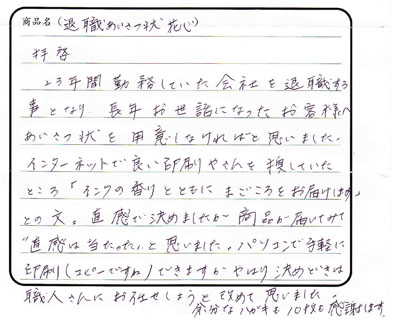 商品名(退職あいさつ状 花心)
拝啓
23年間勤務していた会社を退職する
事となり、長年お世話になったお客様へ
あいさつ状を用意しなければと思いました。
インターネットで良い印刷やさんを捜していた
ところ「インクの香りとともに まごころをお届けします」
との文。直感で決めましたが商品が届いてみて
"直感は当たった"と思いました。パソコンで手軽に
印刷(コピーですね)できますがやはり決めどきは
職人さんにお任せしようと改めて思いました。
余分なハガキも10枚も感謝します